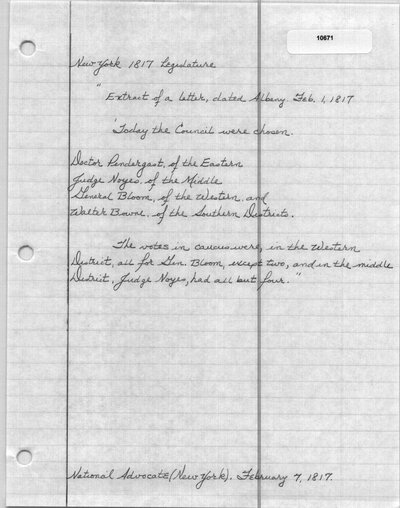 10671
New York 1817 Legislature
"Extract of a letter, dated Albany Feb. 1, 1817
'Today the Council were chosen.
Doctor Pendergast, of the Eastern
Judge Noyes, of the Middle
General Bloom, of the Western and
Walter Bowne, of the Southern Districts.
The votes in caucus were, in the Western
District, all for Gen. Bloom, except two, and in the middle
District, Judge Noyes, had all but four."
National Advocate (New York). February 7, 1817.